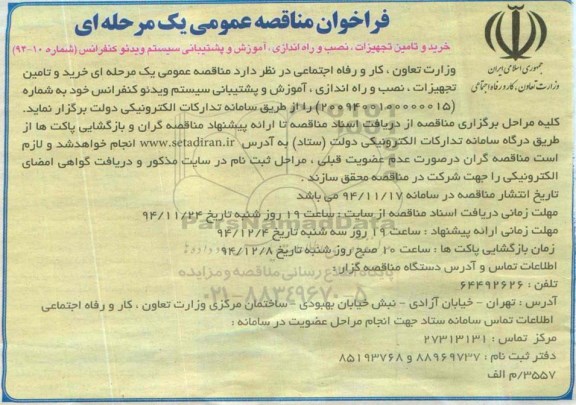 فراخوان مناقصه عمومی یک مرحله ای
خرید و تامین تجهیزات ، نصب و راه اندازی ، آموزش و پشتیبانی سیستم ویدئو کنفرانس (شماره ۱۰-۹۴)
جمهوری اسلامی ایران
وزارت تعاون، کار و رفاه اجتماعی
وزارت تعاون ، کار و رفاه اجتماعی در نظر دارد مناقصه عمومی یک مرحله ای خرید و تامین
تجهیزات ، نصب و راه اندازی ، آموزش و پشتیبانی سیستم ویدئو کنفرانس خود به شماره
(۲۰۰۹۴۰۰۱۰۰۰۰۰۰۱۵) را از طریق سامانه تدارکات الکترونیکی دولت برگزار نماید.
کلیه مراحل برگزاری مناقصه از دریافت اسناد مناقصه تا ارائه پیشنهاد مناقصه گران و بازگشایی پاکت ها از
طریق درگاه سامانه تدارکات الکترونیکی دولت (ستاد) به آدرس www.setadiran.ir انجام خواهدشد و لازم
است مناقصه گران درصورت عدم عضویت قبلی ، مراحل ثبت نام در سایت مذکور و دریافت گواهی امضای
الکترونیکی را جهت شرکت در مناقصه محقق سازند .
تاریخ انتشار مناقصه در سامانه ۹۴/۱۱/۱۷ می باشد
مهلت زمانی دریافت اسناد مناقصه از سایت : ساعت ۱۹ روز شنبه تاریخ ۹۴/۱۱/۲۴
مهلت زمانی ارائه پیشنهاد : ساعت ۱۹ روز سه شنبه تاریخ ۹۴/۱۲/۴
زمان بازگشایی پاکت ها : ساعت ۱۰ صبح روز شنبه تاریخ ۹۴/۱۲/۸
اطلاعات تماس و آدرس دستگاه مناقصه گزار :
تلفن : ۶۴۴۹۲۶۲۶
آدرس : تهران - خیابان آزادی - نبش خیابان بهبودی - ساختمان مرکزی وزارت تعاون ، کار و رفاه اجتماعی
اطلاعات تماس سامانه ستاد جهت انجام مراحل عضویت در سامانه :
مرکز تماس : ۲۷۳۱۳۱۳۱
دفتر ثبت نام : ۸۸۹۶۹۷۳۷ و ۸۵۱۹۳۷۶۸
۳۵۵۷/م الف
ParsNamadData
پایگاه اطلاع رسانی مناقصه و مزایده
۰۲۱-۸۸۳۴۹۶۷۰-۵